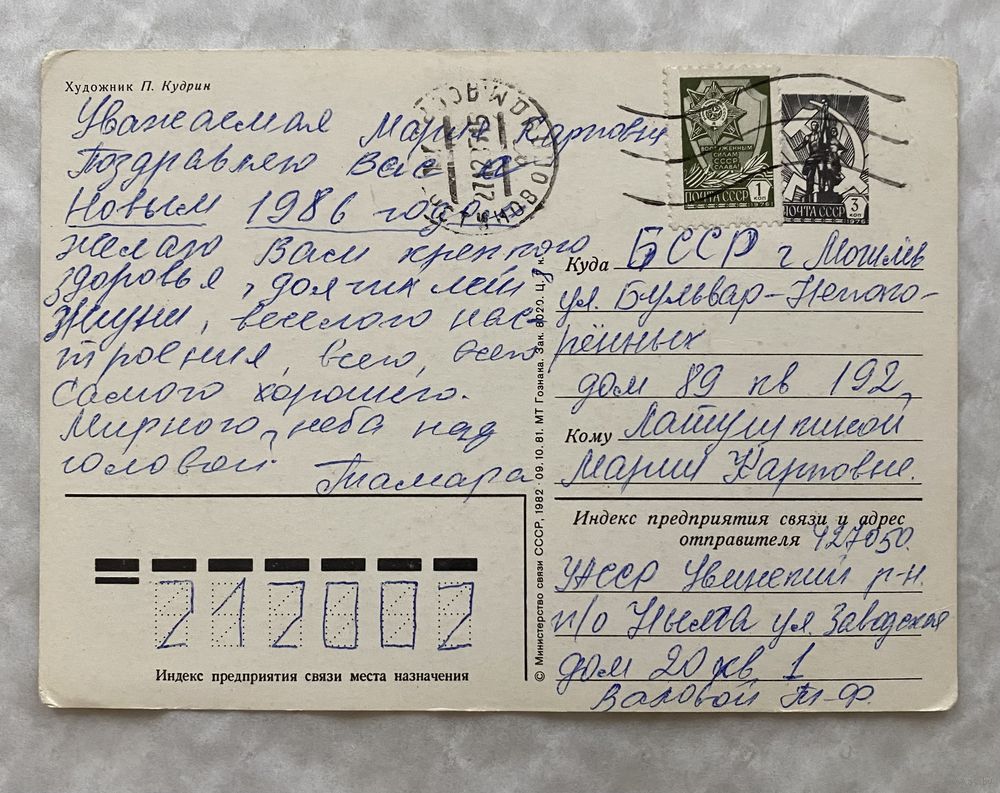 Художник П. Кудрин
Уважаемая Мария Карповна
Поздравляю Вас с
Новым 1986 годом
желаю Вам крепкого
здоровья, долгих лет
жизни, веселого нас-
троения, всего, всего
самого хорошего.
Мирного неба над
головой.
Тамара
27 12
ВООРУЖЕННЫМ
СИЛАМ
СССР
СЛАВА!
ПОЧТА СССР 1 КОП
1976
ПОЧТА СССР 3 КОП
1976
Куда БССР г Могилёв
ул. Бульвар-Непоко-
рённых
дом 89 кв 192,
Кому Латушкиной
Марии Карповне.
Индекс предприятия связи и адрес
отправителя 427050.
УАССР Увинский р-н.
п/о Нылга ул. Заводская
дом 20 кв 1
Валовой Т-Ф.
© Министерство связи СССР, 1982 · 09.10.81. МТ Гознака. Зак. 8020. Ц. 8 к.
212002
Индекс предприятия связи места назначения